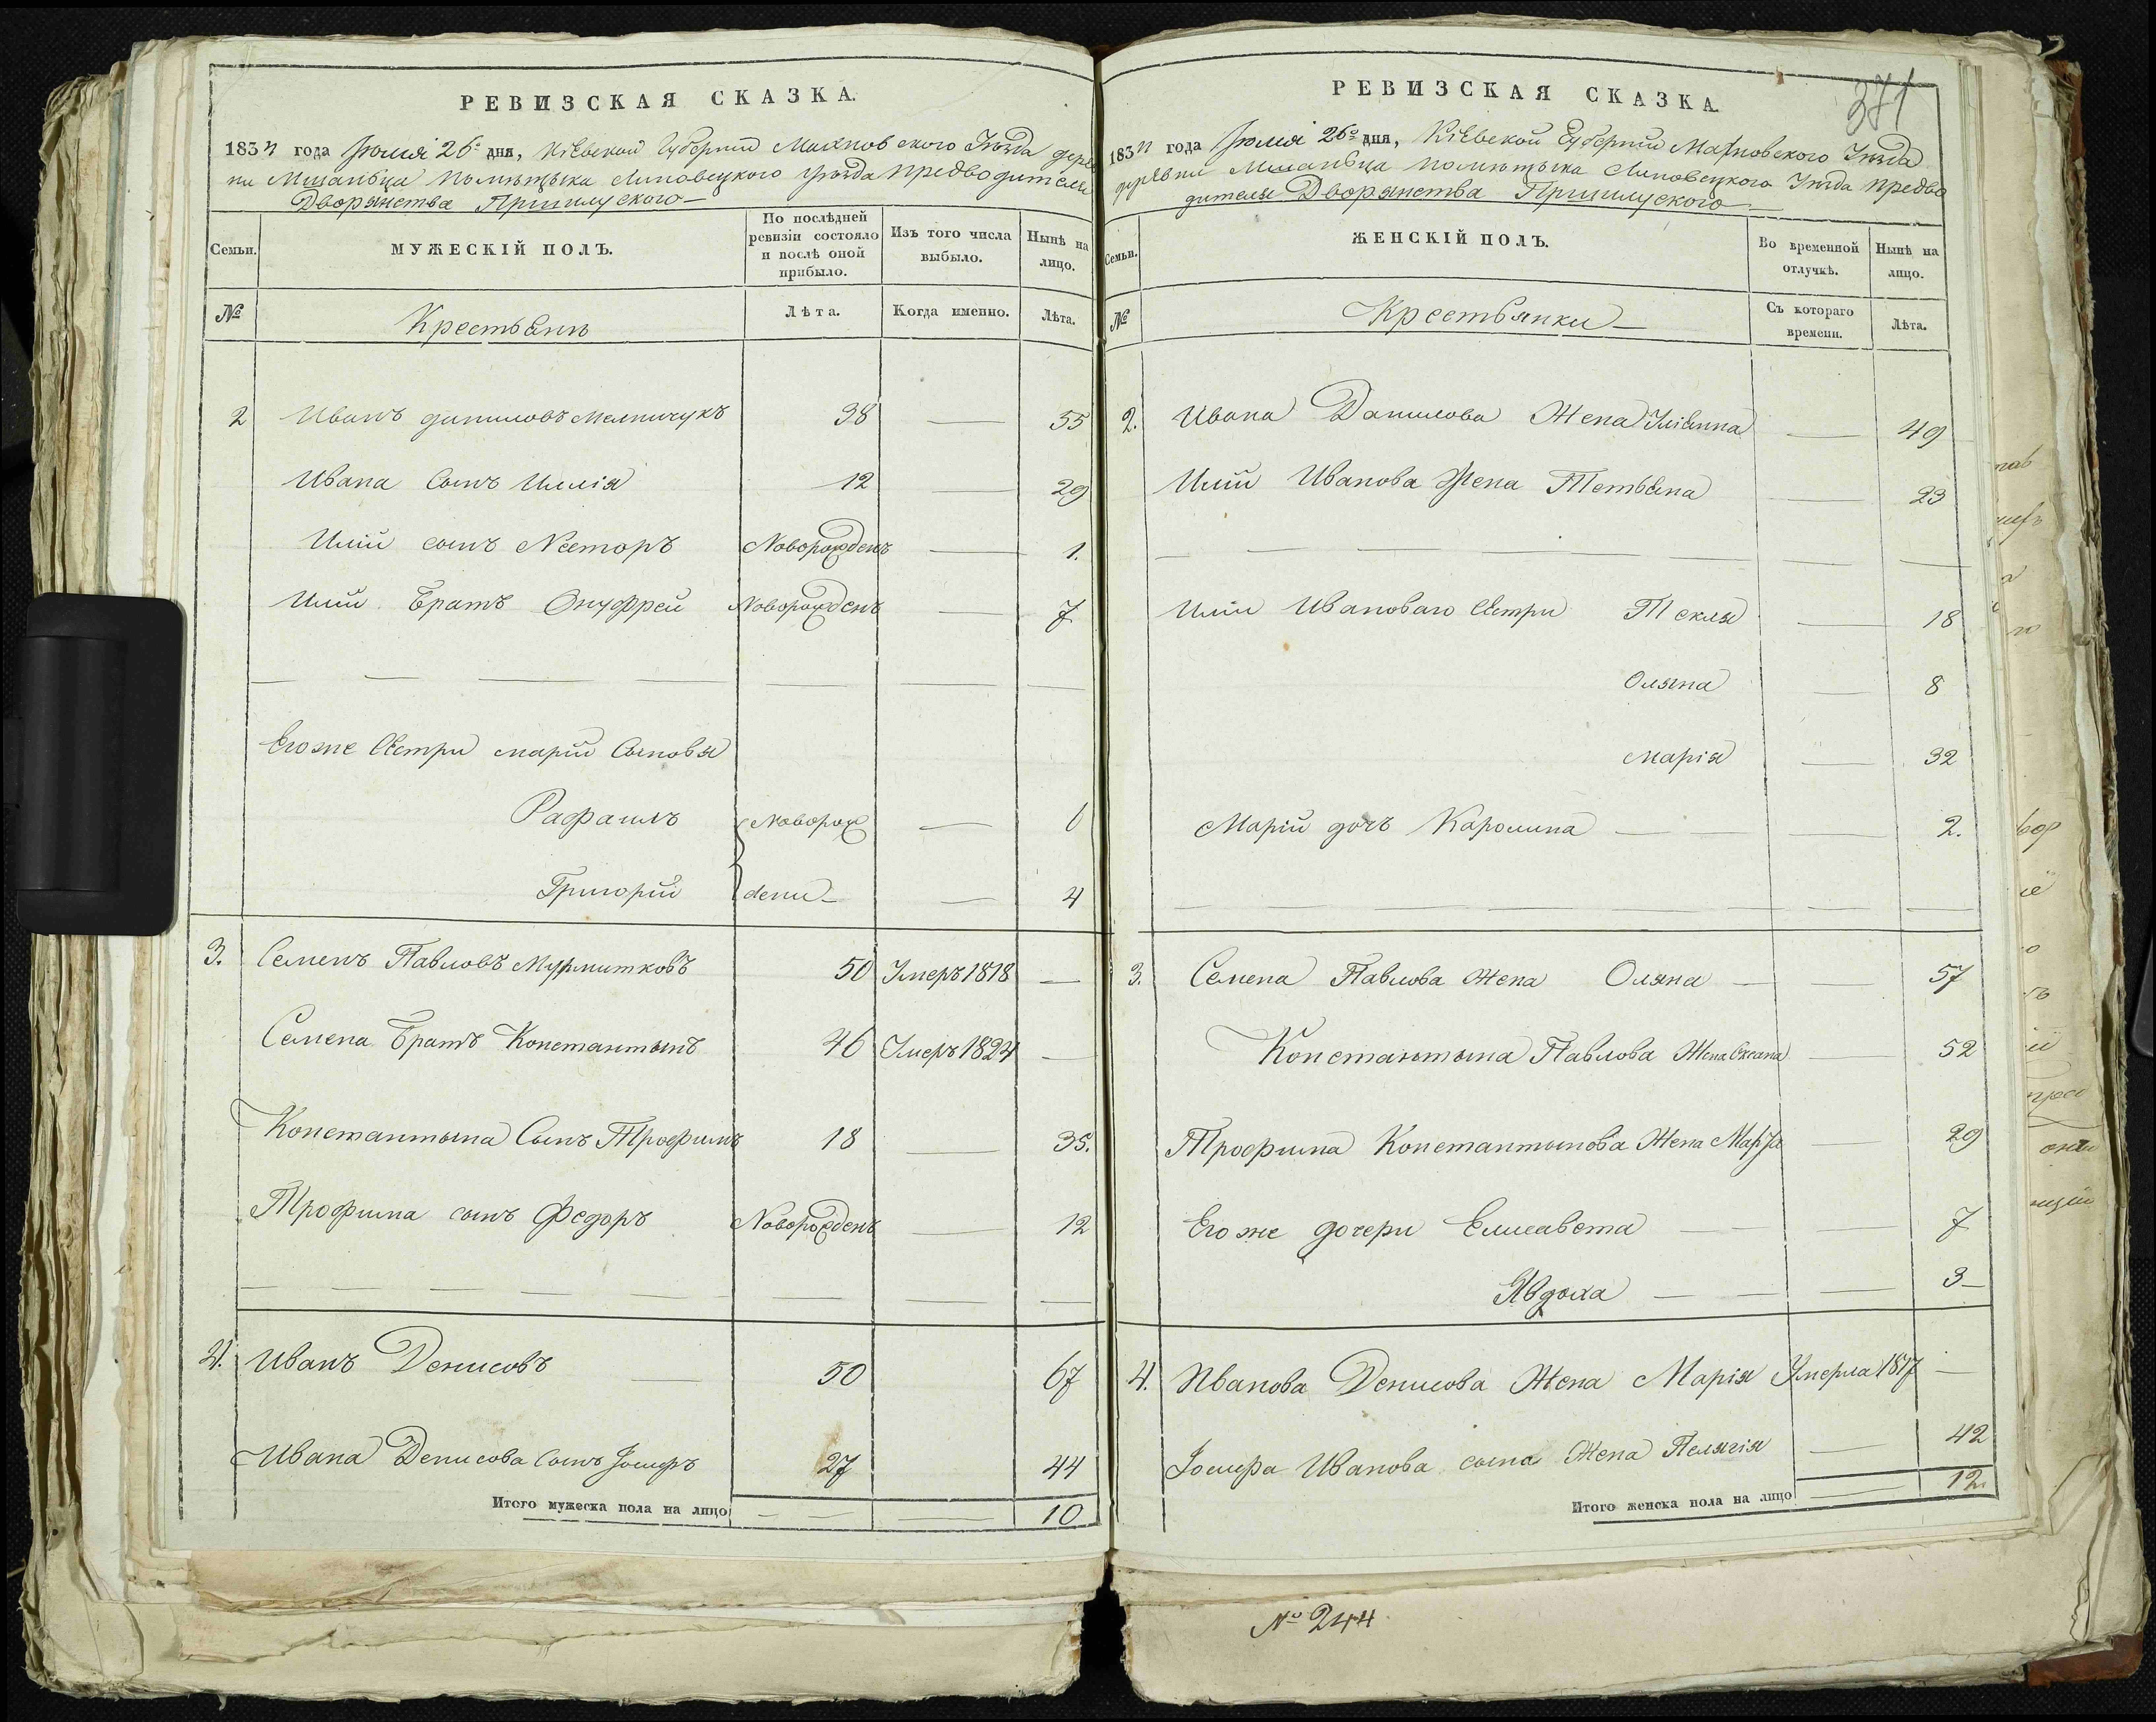 РЕВИЗСКАЯ СКАЗКА.
183 года Іюлія 26го дня, Кіевской Губерніи Махновского Уѣзда дерев
ни помѣщыка Липовецкого уѣзда предводителя
Дворянства Пршилуского
Семьи.
МУЖЕСКІЙ ПОЛЪ.
По послѣдней ревизіи состояло и послѣ оной прибыло.
Изъ того числа выбыло.
Нынѣ на лицо.
№
Крестьянъ
Лѣта.
Когда именно.
Лѣта.
2 Иванъ даниловъ Мелничукъ 38 — 55
Ивана Сынъ Иллія 12 — 29
Иліи сынъ Несторъ Новорожденъ — 1.
Иліи Братъ Онуфрей Новорожденъ — 7
Его же Сестри маріи Сыновья
Рафаилъ Новорож — 6
Григорій дени — 4
3. Семенъ Павловъ 50 Умеръ 1818 —
Семена Братъ Константынъ 46 Умеръ 1824 —
Константына Сынъ Трофимъ 18 — 35.
Трофима сынъ Федоръ Новорожденъ — 12
4. Иванъ Денисовъ — 50 67
Ивана Денисова Сынъ Іосифъ 27 44
Итого мужеска пола на лицо — — — 10
371
РЕВИЗСКАЯ СКАЗКА
183 года Іюлія 26го дня, Кіевской Губерніи Махновского Уѣзда
деревни помѣщыка Липовецкого Уѣзда предво
дителя Дворянства Пршилуского
Семьи.
ЖЕНСКІЙ ПОЛЪ.
Во временной отлучкѣ.
Нынѣ на лицо.
№
Крестьянки
Съ котораго времени.
Лѣта.
2. Ивана Данилова Жена Уліянна — 49
Иліи Иванова Жена Тетьяна — 23
Иліи Ивановаго Сестри Текля — 18
Оляна — 8
Марія — 32
Маріи дочь Каролина — — 2.
3. Семена Павлова Жена Оляна — — 57
Константына Павлова Жена Оксана — 52
Трофима Константынова Жена Марфа — 29
Его же дочери Елисавета — — 7
Явдоха — — — 3
4. Иванова Денисова Жена Марія Умерла 1817 —
Іосифа Иванова сына Жена Пелягія — 42
Итого женска пола на лицо — 12.
№ 244